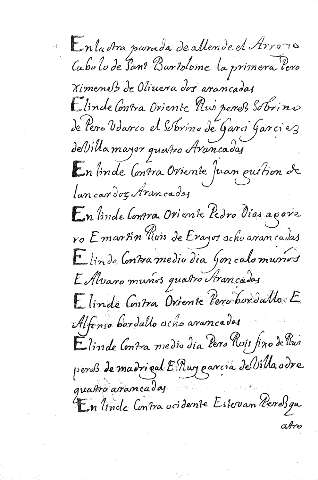 En la otra parada de allende el Arroyo
Cabo lo de Sant Bartolome la primera Pero
Ximenes de Olivera dos arancadas
E linde Contra Oriente Ruiperes Sobrino
de Pero Udarco el Sobrino de Garci Garcies
de Villa mayor quatro Arancadas
En linde Contra Oriente Juan
dos Arancadas
En linde Contra Oriente Pedro Dias
ro E martin Ruis de Erazos ocho arancadas
E linde Contra medio dia Goncalo muños
E Alvaro muños quatro Arancadas
E linde Contra Oriente Pero bordallo E
Alfonso bordallo ocho arancadas
E linde Contra medio dia Pero Ruis fijo de Rui
peres de madrigal E Ruy garcia de Villa odre
quatro arancadas
En linde Contra ocidente Estevan Peres qu
atro